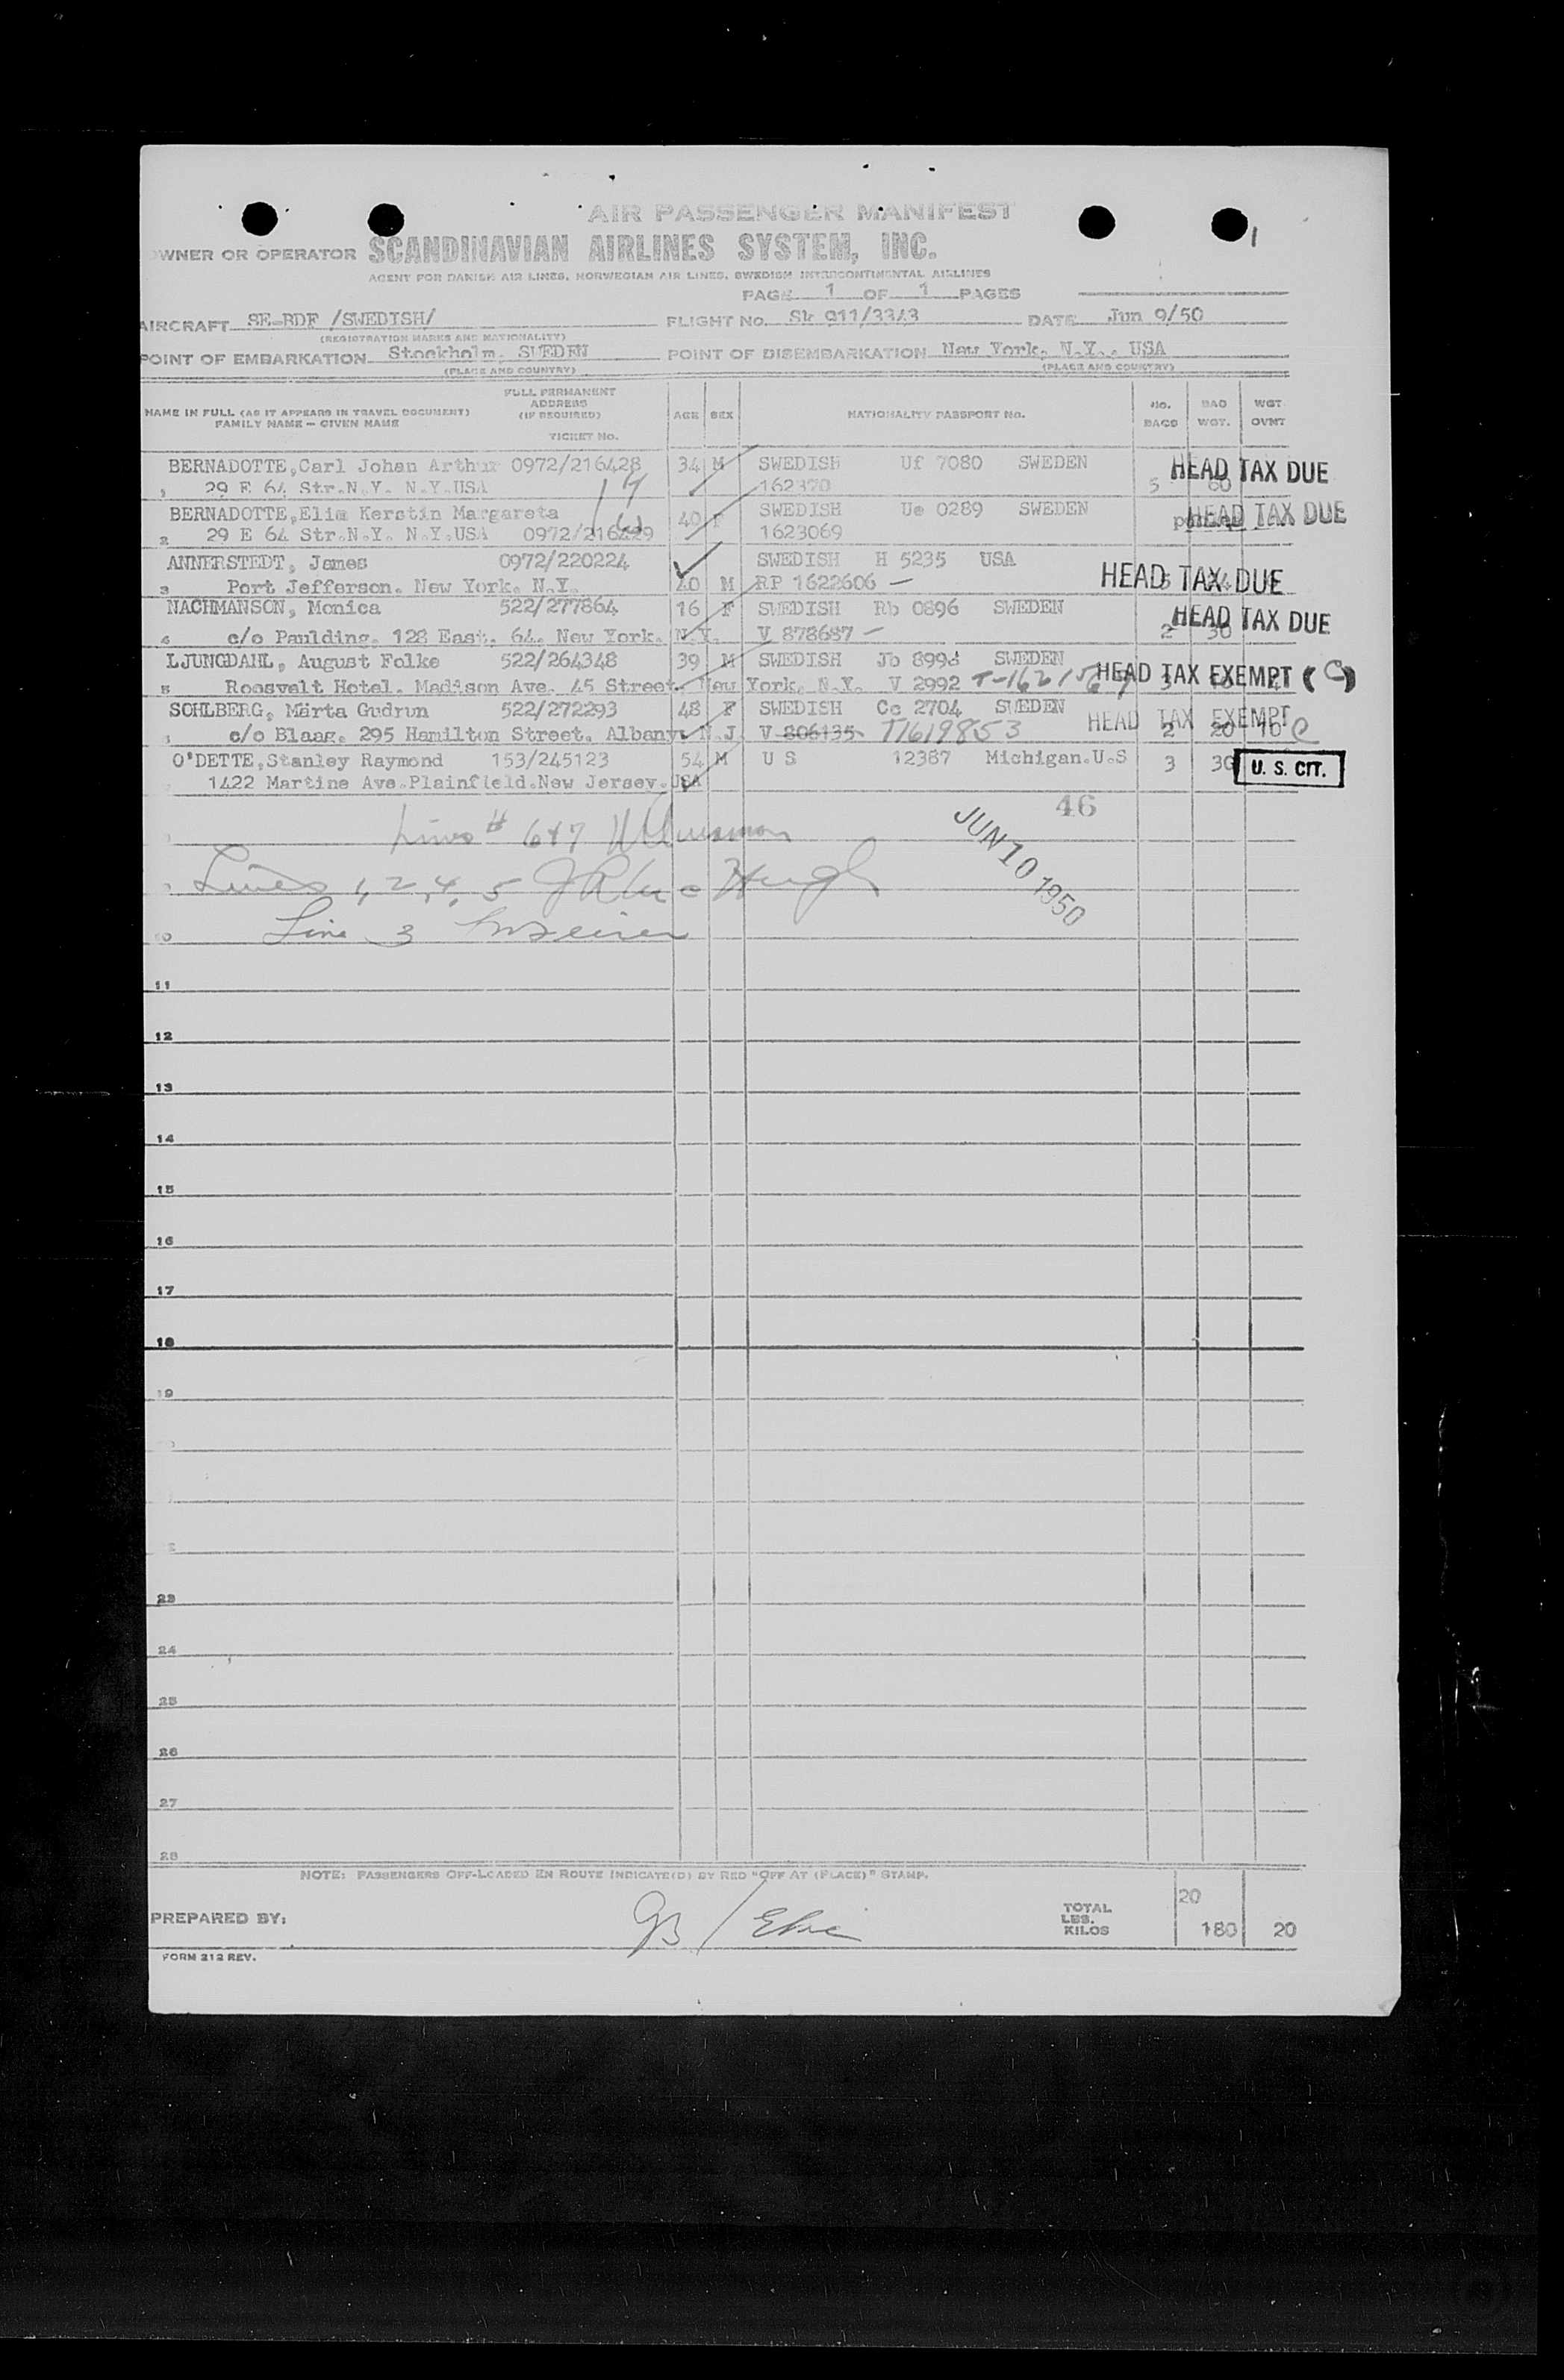 AIR PASSENGER MANIFEST
OWNER OR OPERATOR SCANDINAVIAN AIRLINES SYSTEM, INC.
AGENT FOR DANISH AIR LINES, NORWEGIAN AIR LINES, SWEDISH INTERCONTINENTAL AIRLINES
PAGE 1 OF 1 PAGES
AIRCRAFT SE-BDF /SWEDISH/ FLIGHT No. Sk 911/3343 DATE Jun 9/50
(REGISTRATION MARKS AND NATIONALITY)
POINT OF EMBARKATION Stockholm, SWEDEN POINT OF DISEMBARKATION New York, N.Y., USA
(PLACE AND COUNTRY) (PLACE AND COUNTRY)
NAME IN FULL (AS IT APPEARS IN TRAVEL DOCUMENT) FAMILY NAME — GIVEN NAME FULL PERMANENT ADDRESS (IF REQUIRED) TICKET No. AGE SEX NATIONALITY PASSPORT No. No. BAGS BAG WGT. WGT OVWT
BERNADOTTE,Carl Johan Arthur 0972/216428 34 M SWEDISH Uf 7080 SWEDEN HEAD TAX DUE
1 29 E 64 Str.N.Y. N.Y.USA 162370 5 60
BERNADOTTE,Elim Kerstin Margareta 40 F SWEDISH Ue 0289 SWEDEN HEAD TAX DUE
2 29 E 64 Str.N.Y. N.Y.USA 0972/216429 1623069
ANNERSTEDT, James 0972/220224 SWEDISH H 5235 USA HEAD TAX DUE
3 Port Jefferson. New York. N.Y. 40 M RP 1622606 — 5
NACHMANSON, Monica 522/277864 16 F SWEDISH Rb 0896 SWEDEN HEAD TAX DUE
4 c/o Paulding. 128 East. 64. New York. N.Y. V 878687 — 2 30
LJUNGDAHL, August Folke 522/264348 39 M SWEDISH Jb 8998 SWEDEN HEAD TAX EXEMPT (C)
5 Roosvelt Hotel. Madison Ave. 45 Street. New York. N.Y. V 2992 3
SOHLBERG, Märta Gudrun 522/272293 48 F SWEDISH Cc 2704 SWEDEN HEAD TAX EXEMPT C
c/o Blaag. 295 Hamilton Street. Albany. N.J. V 806135 T1619853 2 20 10
O'DETTE,Stanley Raymond 153/245123 54 M U S 12387 Michigan.U.S 3 30 U. S. CIT.
1422 Martine Ave.Plainfield.New Jersey.USA
46
Lines # 6&7
JUN 10 1950
Lines 1, 2, 4, 5
10 Line 3
11
12
13
14
15
16
17
18
19
23
24
25
26
27
28
NOTE: PASSENGERS OFF-LOADED EN ROUTE INDICATE(D) BY RED "OFF AT (PLACE)" STAMP.
PREPARED BY: TOTAL LBS. KILOS 20 180 20
FORM 212 REV.